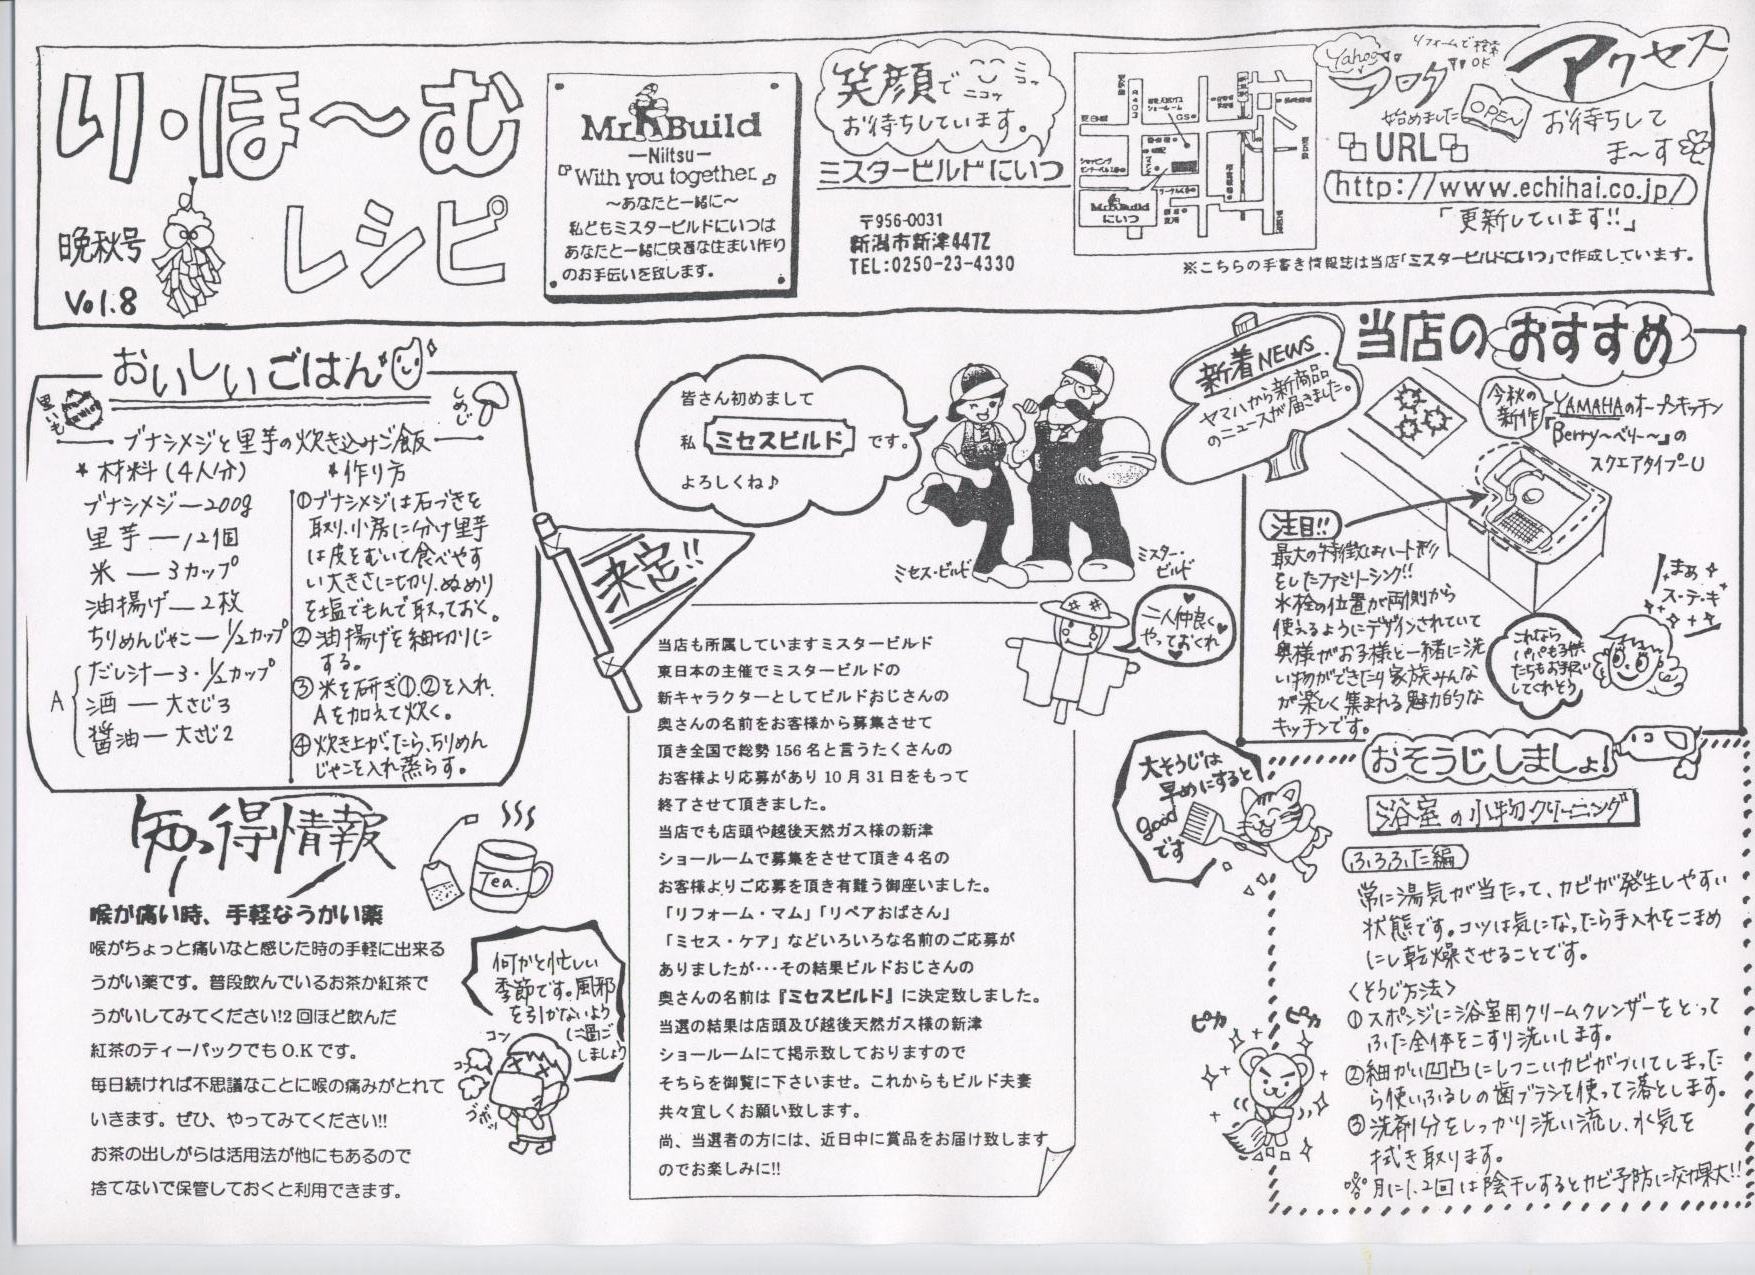 り・ほ～む
レシピ
晩秋号
Vol.8
Mr.Build
―Niitsu―
『With you together.』
～あなたと一緒に～
私どもミスタービルドにいつは
あなたと一緒に快適な住まい作り
のお手伝いを致します。
笑顔で
ニコッ
ニコッ
お待ちしています。
ミスタービルドにいつ
〒956-0031
新潟市新津4472
TEL:0250-23-4330
Mr.Build
にいつ
Yahoo
リフォームで検索
OK
ブログ
始めました
OPEN
アクセス
お待ちして
ま～す
URL
http://www.echihai.co.jp/
「更新しています!!」
※こちらの手書き情報誌は当店「ミスタービルドにいつ」で作成しています。
おいしいごはん
里いも
しめじ
ブナシメジと里芋の炊き込みご飯
*材料(4人分)
ブナシメジ―200g
里芋―12個
米―3カップ
油揚げ―2枚
ちりめんじゃこ―1/2カップ
A
だし汁―3・1/2カップ
酒―大さじ3
醤油―大さじ2
*作り方
①ブナシメジは石づきを
取り、小房に分け里芋
は皮をむいて食べやす
い大きさに切り、ぬめり
を塩でもんで取っておく。
②油揚げを細切りに
する。
③米を研ぎ①、②を入れ、
Aを加えて炊く。
④炊き上がったら、ちりめん
じゃこを入れ蒸らす。
知っ得情報
Tea.
喉が痛い時、手軽なうがい薬
喉がちょっと痛いなと感じた時の手軽に出来る
うがい薬です。普段飲んでいるお茶か紅茶で
うがいしてみてください!2回ほど飲んだ
紅茶のティーパックでもO.Kです。
毎日続ければ不思議なことに喉の痛みがとれて
いきます。ぜひ、やってみてください!!
お茶の出しがらは活用法が他にもあるので
捨てないで保管しておくと利用できます。
何かと忙しい
季節です。風邪
を引かないよう
に過ご
しましょう
コン
コン
ゴホッ
皆さん初めまして
私 ミセスビルド です。
よろしくね♪
ミセス・ビルド
ミスター・
ビルド
決定!!
二人仲良く
やっておくれ
当店も所属していますミスタービルド
東日本の主催でミスタービルドの
新キャラクターとしてビルドおじさんの
奥さんの名前をお客様から募集させて
頂き全国で総勢156名と言うたくさんの
お客様より応募があり10月31日をもって
終了させて頂きました。
当店でも店頭や越後天然ガス様の新津
ショールームで募集をさせて頂き4名の
お客様よりご応募を頂き有難う御座いました。
「リフォーム・マム」「リペアおばさん」
「ミセス・ケア」などいろいろな名前のご応募が
ありましたが・・・その結果ビルドおじさんの
奥さんの名前は『ミセスビルド』に決定致しました。
当選の結果は店頭及び越後天然ガス様の新津
ショールームにて掲示致しておりますので
そちらを御覧に下さいませ。これからもビルド夫妻
共々宜しくお願い致します。
尚、当選者の方には、近日中に賞品をお届け致します
のでお楽しみに!!
新着NEWS.
ヤマハから新商品
のニュースが届きました。
当店のおすすめ
今秋の
新作
YAMAHAのオープンキッチン
『Berry～ベリー～』の
スクエアタイプ-U
注目!!
最大の特徴はハート形
をしたファミリーシンク!!
水栓の位置が両側から
使えるようにデザインされていて
奥様がお子様と一緒に洗
い物ができたり家族みんな
が楽しく集まれる魅力的な
キッチンです。
まぁ
ス・テ・キ
これなら
パパも子供
たちもお手伝い
してくれそう
大そうじは
早めにすると
good
です
おそうじしましょ!
浴室の小物クリーニング
ふろふた編
常に湯気が当たって、カビが発生しやすい
状態です。コツは気になったら手入れをこまめ
にし乾燥させることです。
<そうじ方法>
①スポンジに浴室用クリームクレンザーをとって
ふた全体をこすり洗いします。
②細かい凹凸にしつこいカビがついてしまった
ら使いふるしの歯ブラシを使って落とします。
③洗剤分をしっかり洗い流し、水気を
拭き取ります。
月に1、2回は陰干しするとカビ予防に効果大!!
ピカ
ピカ